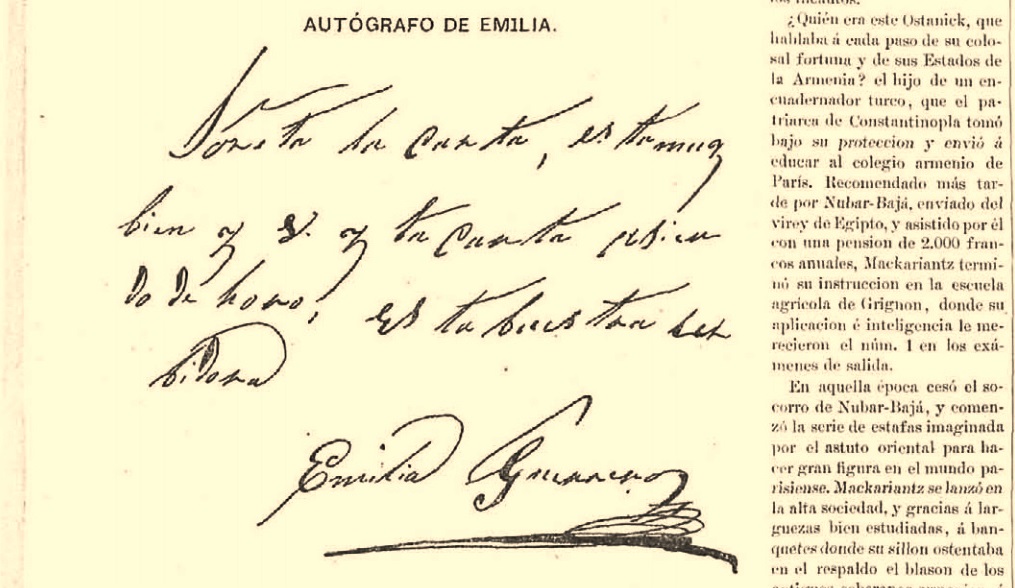 AUTÓGRAFO DE EMILIA.
la carta, es tamuy
bien y y ta carta
do de horo, Es ta buestra ser
bidora
Emilia Guerrero
los incautos.
¿Quién era este Ostanick, que
hablaba á cada paso de su colo-
sal fortuna y de sus Estados de
la Armenia? el hijo de un en-
cuadernador turco, que el pa-
triarca de Constantinopla tomó
bajo su proteccion y envió á
educar al colegio armenio de
París. Recomendado más tar-
de por Nubar-Bajá, enviado del
virey de Egipto, y asistido por él
con una pension de 2.000 fran-
cos anuales, Mackariantz termi-
nó su instruccion en la escuela
agrícola de Grignon, donde su
aplicacion é inteligencia le me-
recieron el núm. 1 en los exá-
menes de salida.
En aquella época cesó el so-
corro de Nubar-Bajá, y comen-
zó la serie de estafas imaginada
por el astuto oriental para ha-
cer gran figura en el mundo pa-
risiense. Mackariantz se lanzó en
la alta sociedad, y gracias á lar-
guezas bien estudiadas, á ban-
quetes donde su sillon ostentaba
en el respaldo el blason de los